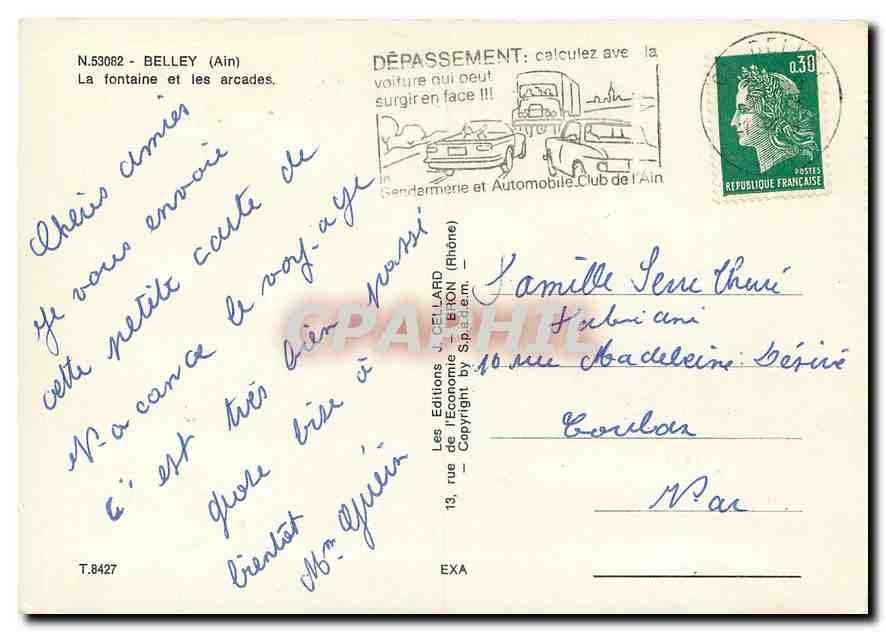 N.53082 - BELLEY (Ain)
La fontaine et les arcades.
DÉPASSEMENT: calculez ave la
voiture qui peut
surgir en face !!!
Gendarmerie et Automobile Club de l'Ain
0,30
POSTES
REPUBLIQUE FRANÇAISE
Chères amies
je vous envoie
cette petite carte de
Vacance le voy-age
c'est très bien passé
grose bise à
bientôt
Mm Guérin
Les Editions J. CELLARD
13, rue de l'Economie - BRON (Rhône)
— Copyright by S.p.a.d.e.m. —
Famille Serre
10 rue Madeleine Désiré
Toulon
Var
CPAPHIL
T.8427
EXA